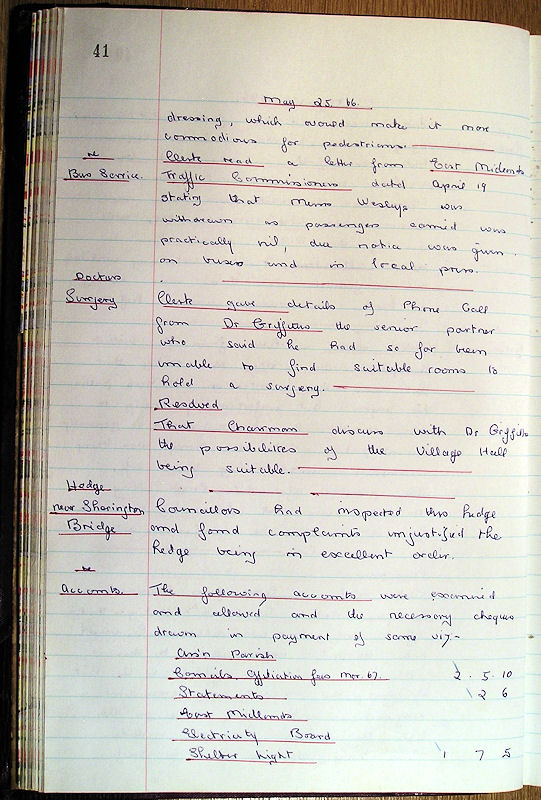 41
May 25 66.
dressing, which would make it more
commodious for pedestrians.
re
Clerk read a letter from East Midlands
Bus Service. Traffic Commissioners dated April 19
stating that Messrs Wesleys was
withdrawn as passengers carried was
practically nil, due notice was given
on buses and in local press.
Doctors
Surgery Clerk gave details of Phone Call
from Dr Gryffiths the senior partner
who said he had so far been
unable to find suitable rooms to
hold a surgery.
Resolved
That Chairman discuss with Dr Gryffiths
the possibilities of the Village Hall
being suitable.
Hedge
near Sherington Councillors had inspected this hedge
Bridge and found complaints unjustified the
hedge being in excellent order.
re
Accounts. The following accounts were examined
and allowed and the necessary cheques
drawn in payment of same viz-
Ass'n Parish
Councils, Affiliation fees Mar. 67. 2. 5. 10
Statements 2 6
East Midlands
Electricity Board
Shelter Light 1 7 5